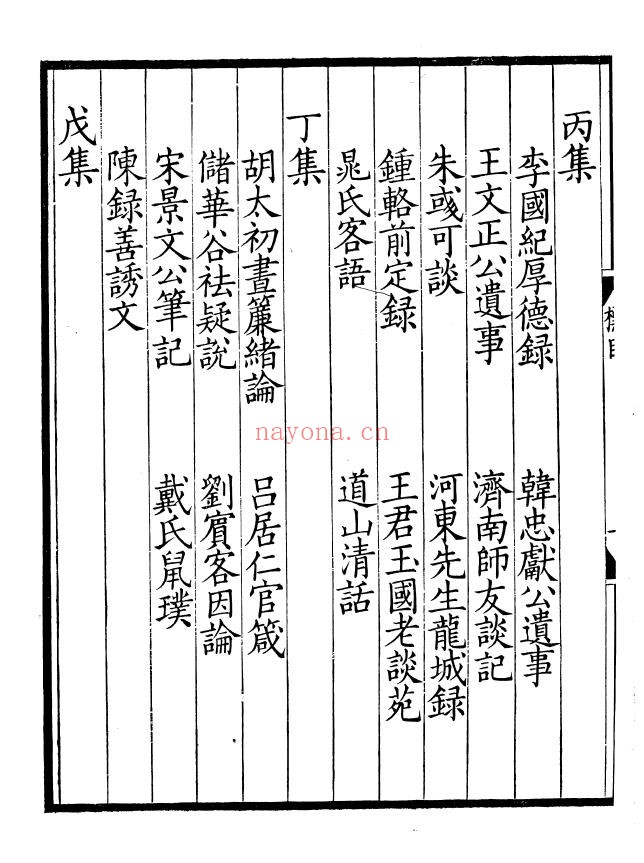 丙集
李國紀厚德録 韓忠獻公遺事
王文正公遺事 濟南師友談記
朱彧可談 河東先生龍城録
鍾輅前定録 王君玉國老談苑
晁氏客語 道山清話
丁集
胡太初晝簾緒論 呂居仁官箴
儲華谷祛疑説 劉賓客因論
宋景文公筆記 戴氏鼠璞
陳録善誘文
戊集
nayona.cn